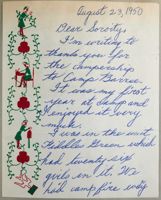 August 23, 1950
Dear Sorority,
I'm writing to
thank you for
the campership
to Camp
It was my first
year at camp and
I enjoyed it very
much.
I was in the unit
Green which
had twenty six
girls in it. We
had campfire